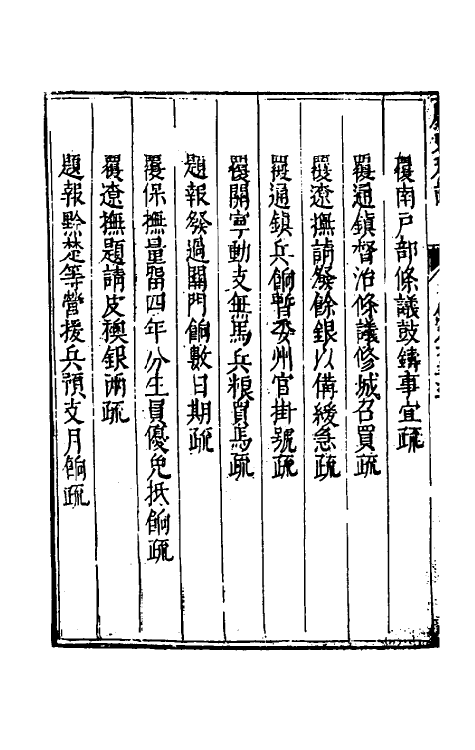 覆南戶部條議鼓鑄事宜疏
覆通鎮督治條議修城召買疏
覆遼撫請發餘銀以備緩急疏
覆通鎮兵餉暫委州官掛號疏
覆開寧動支無馬兵粮買馬疏
題報發過關門餉數日期疏
覆保撫量留四年分生員優免抵餉疏
覆遼撫題請皮襖銀兩疏
題報黔楚等營援兵預支月餉疏